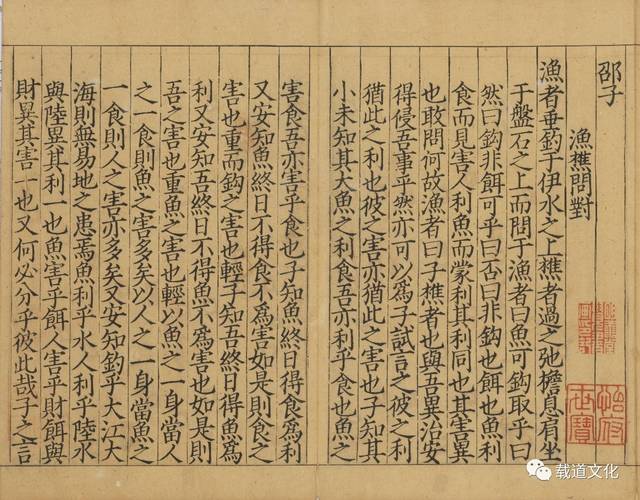 邵子
漁樵問對
漁者垂釣于伊水之上樵者過之弛檐息肩坐
于盤石之上而問于漁者曰魚可鈎取乎曰
然曰鈎非餌可乎曰否曰非鈎也餌也魚利
食而見害人利魚而蒙利其利同也其害異
也敢問何故漁者曰子樵者也與吾異治安
得侵吾事乎然亦可以為子試言之彼之利
猶此之利也彼之害亦猶此之害也子知其
小未知其大魚之利食吾亦利乎食也魚之
害食吾亦害乎食也子知魚終日得食為利
又安知魚終日不得食不為害如是則食之
害也重而鈎之害也輕子知吾終日得魚為
利又安知吾終日不得魚不為害也如是則
吾之害也重魚之害也輕以魚之一身當人
之一食則魚之害多矣以人之一身當魚之
一食則人之害亦多矣又安知釣乎大江大
海則無易地之患焉魚利乎水人利乎陸水
與陸異其利一也魚害乎餌人害乎財餌與
財異其害一也又何必分乎彼此哉子之言
怡府世寶
载道文化